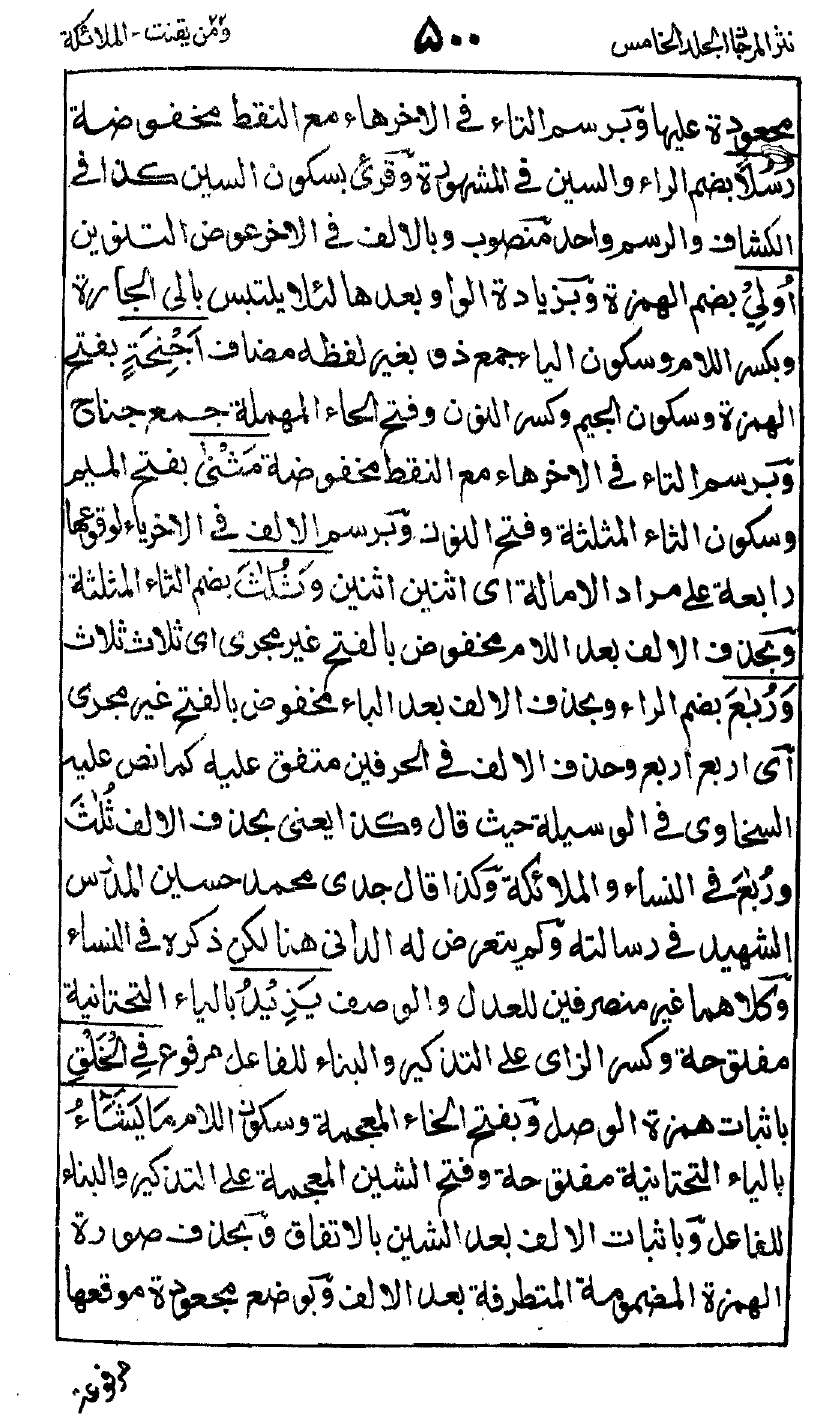 نثر المرجان الجلد الخامس ۵۰۰ ومن يقنت - الملائكة
مجعودة عليها وبرسم التاء فى الاخر هاء مع النقط مخفوضة
رُسُلًا بضم الراء والسين فى المشهورة وقرئ بسكون السين كذا فى
الكشاف والرسم واحد منصوب وبالالف فى الاخر عوض التنوين
أُولِيْ بضم الهمزة وبزيادة الواو بعدها لئلا يلتبس بالى الجارة
وبكسر اللام وسكون الياء جمع ذو بغير لفظه مضاف اَجْنِحَةٍ بفتح
الهمزة وسكون الجيم وكسر النون وفتح الحاء المهملة جمع جناح
وبرسم التاء فى الاخر هاء مع النقط مخفوضة مَثْنٰى بفتح الميم
وسكون الثاء المثلثة وفتح النون وبرسم الالف فى الاخر ياء لوقوعها
رابعة على مراد الامالة اى اثنين اثنين وَثُلٰثَ بضم الثاء المثلثة
وبحذف الالف بعد اللام مخفوض بالفتح غير مجرى اى ثلاث ثلاث
وَرُبٰعَ بضم الراء وبحذف الالف بعد الباء مخفوض بالفتح غير مجرى
اى اربع اربع وحذف الالف فى الحرفين متفق عليه كما نص عليه
السخاوى فى الوسيلة حيث قال وكذا يعنى بحذف الالف ثُلٰثَ
ورُبٰعَ فى النساء والملائكة وكذا قال جدى محمد حسين المدرس
الشهيد فى رسالته ولم يتعرض له الدانى هنا لكن ذكره فى النساء
وكلاهما غير منصرفين للعدل والوصف يَزِيْدُ بالياء التحتانية
مفتوحة وكسر الزاى على التذكير والبناء للفاعل مرفوع فِى الْخَلْقِ
باثبات همزة الوصل وبفتح الخاء المعجمة وسكون اللام مَا يَشَآءُ
بالياء التحتانية مفتوحة وفتح الشين المعجمة على التذكير والبناء
للفاعل وباثبات الالف بعد الشين بالاتفاق وبحذف صورة
الهمزة المضمومة المتطرفة بعد الالف وبوضع مجعودة موقعها
مرفوعة